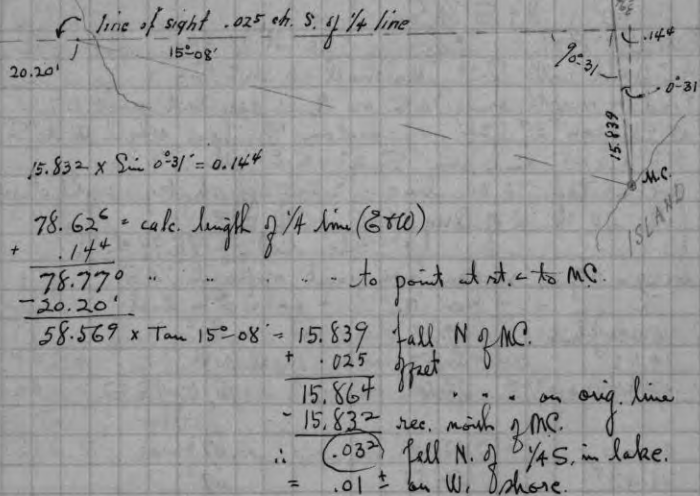 line of sight .025 ch. S. of 1/4 line
15°-08'
20.20¹
.144
90°-31'
0°-31'
15.839
M.C.
ISLAND
15.832 x Sin 0°-31' = 0.144
78.62⁶ = calc. length of 1/4 line (E&W)
+ .144
78.77⁰ " " " " - to point at rt. ∠ to M.C.
-20.20¹
58.569 x Tan 15°-08' = 15.839 fall N of MC.
+ .025 offset
15.864 " " " on orig. line
- 15.832 rec. north of MC.
∴ .032 fall N. of 1/4 S. in lake.
= .01 ± on W. shore.